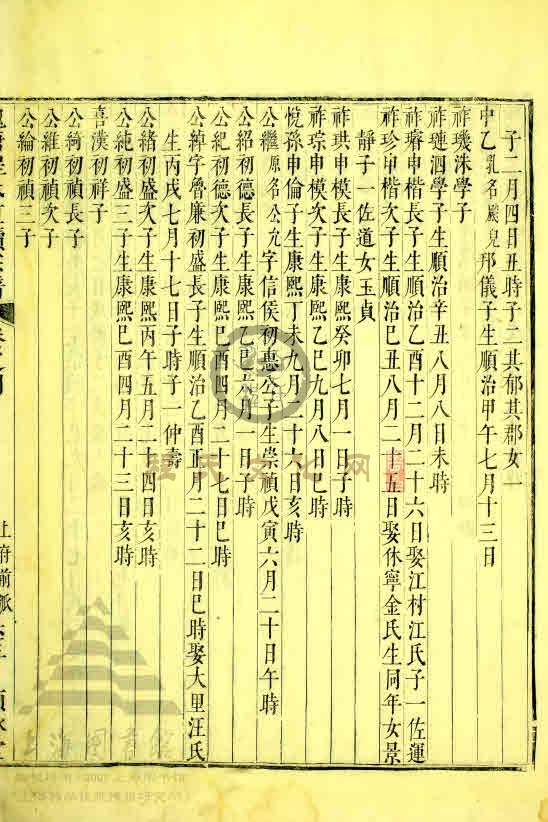 子二月四日丑時子二其郁其郡女一
中乙乳名臘兒邦儀子生順治甲午七月十三日
祚璣洙學子
祚璉泗學子生順治辛丑八月八日未時
祚璿申楷長子生順治乙酉十二月二十六日娶江村江氏子一佐運
祚珍申楷次子生順治己丑八月二十五日娶休寧金氏生同年女景
靜子一佐道女玉貞
祚珙申模長子生康熙癸卯七月一日子時
祚琮申模次子生康熙乙巳九月八日巳時
悅孫申倫子生康熙丁未九月二十六日亥時
公繼原名公允字信侯初惠公子生崇禎戊寅六月二十日午時
公紹初德長子生康熙乙巳六月一日子時
公紀初德次子生康熙己酉四月二十七日巳時
公綽字魯廉初盛長子生順治乙酉正月二十二日巳時娶大里汪氏
生丙戌七月十七日子時子一仲壽
公緒初盛次子生康熙丙午五月二十四日亥時
公純初盛三子生康熙己酉四月二十三日亥時
喜漢初祥子
公綺初禎長子
公維初禎次子
公綸初禎三子
程氏文化网
上海圖書館